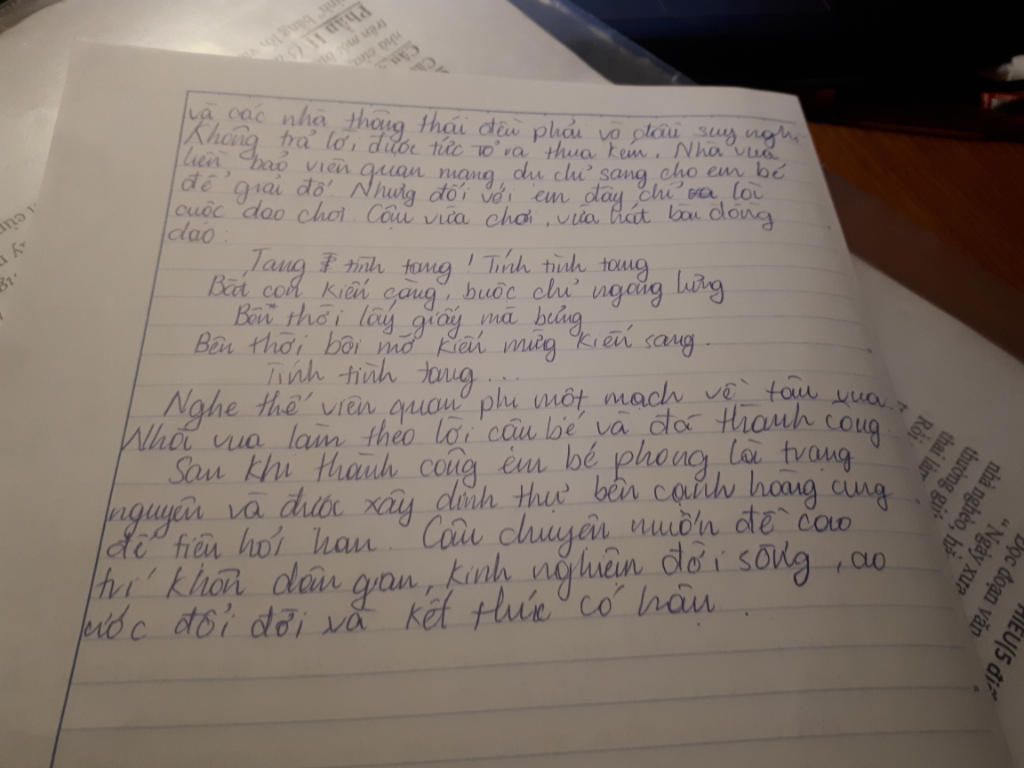 và các nhà thông thái đều phải vò đầu suy nghĩ
Không trả lời được tức tỏ ra thua kém. Nhà vua
liền bảo viên quan mang dụ chỉ sang cho em bé
để giải đố. Nhưng đối với em đây chỉ là lời
cuộc dạo chơi. Cậu vừa chơi, vừa hát bài đồng
dao:
Tang tình tang! Tính tình tang
Bắt con kiến càng, buộc chỉ ngang lưng
Bên thời lấy giấy mà bưng
Bên thời bôi mỡ kiến mừng kiến sang.
Tính tình tang...
Nghe thế viên quan phi một mạch về tâu vua.
Nhà vua làm theo lời cậu bé và đã thành công
Sau khi thành công em bé phong là trạng
nguyên và được xây dinh thự bên cạnh hoàng cung
để tiện hỏi han. Câu chuyện muốn đề cao
trí khôn dân gian, kinh nghiệm đời sống, ao
ước đổi đời và kết thúc có hậu.
Phần II
Đọc đoạn văn
"Ngày xưa
nhà nghèo,
thương
HIỂU(5 đi